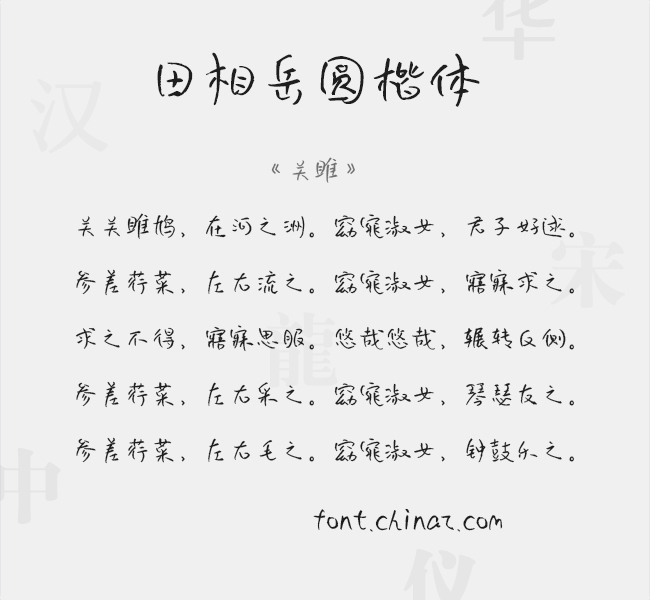 华
汉
田相岳圆楷体
《关雎》
关关雎鸠，在河之洲。窈窕淑女，君子好逑。
宋
参差荇菜，左右流之。窈窕淑女，寤寐求之。
求之不得，寤寐思服。悠哉悠哉，辗转反侧。
龍
参差荇菜，左右采之。窈窕淑女，琴瑟友之。
参差荇菜，左右毛之。窈窕淑女，钟鼓乐之。
中
font.chinaz.com
仪